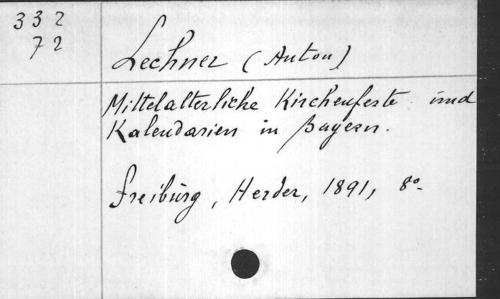 332
72
Lechner (Anton)
Mittelalterliche Kirchenfeste und
Kalendarien in Bayern.
Freiburg, Herder, 1891, 8º